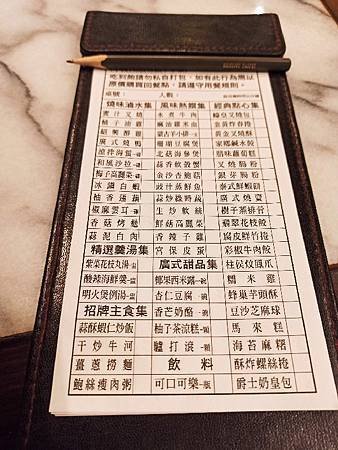 吃到飽請勿私自打包，如有此行為應以
原價購買回餐點，請遵守用餐規則。
桌號：
人數：
燒味滷水集
蜜汁叉燒
柚子油雞
紹興醉雞
廣式燒鴨
涼拌海蜇
和風沙拉
梅子高麗菜
冰鎮白蝦
柚香藩蘋
椒麻雲耳
香菇烤麩
蒜泥白肉
精選羹湯集
紫菜花枝丸湯
酸辣海鮮羹
明火煲例湯
招牌主食集
蒜酥蝦仁炒飯
干炒牛河
薑蔥撈麵
鮑絲瘦肉粥
風味熱饌集
水煮牛肉
麻油雞米血
蒙古羊小排
珊瑚豆腐煲
北菇海參煲
蒜香軟殼蟹
金沙杏鮑菇
豉汁蒸鮮魚
蒜炒綠時蔬
生炒軟絲
鮮菇高麗菜
香辣子雞
宮保皮蛋
廣式甜品集
椰果西米露
杏仁豆腐
香芒奶酪
柚子茶涼糕
驢打滾
飲料
可口可樂
經典點心集
蠔皇叉燒包
金黃炸春捲
黃金叉燒酥
家鄉鹹水餃
臘味蘿蔔糕
叉燒腸粉
銀芽腸粉
泰式鮮蝦餅
廣式燒賣
樹子蒸排骨
翡翠花枝餃
腐皮鮮竹捲
彩椒牛肉餃
柱侯炆鳳爪
糯米雞
蜂巢芋頭酥
豆沙芝麻球
馬來糕
海苔麻糬
酥炸螺絲捲
爵士奶皇包